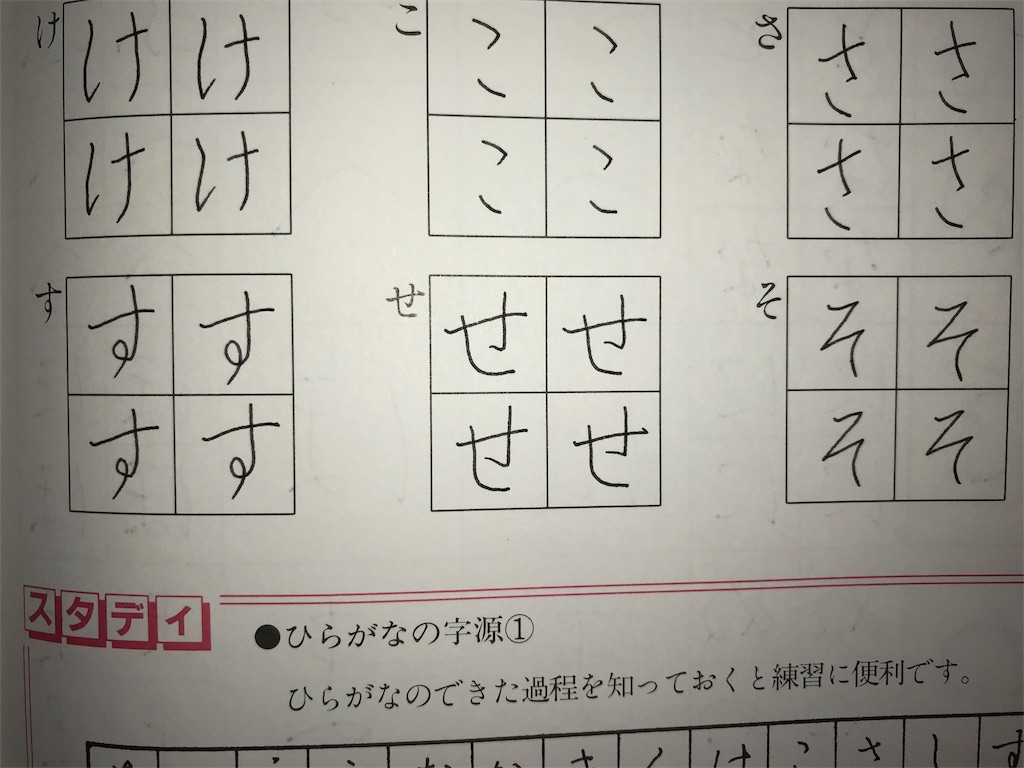 け けけ こ ここ さ ささ
けけ ここ ささ
す すす せ せせ そ そそ
すす せせ そそ
スタディ
●ひらがなの字源①
ひらがなのできた過程を知っておくと練習に便利です。
か さ く け こ さ し す